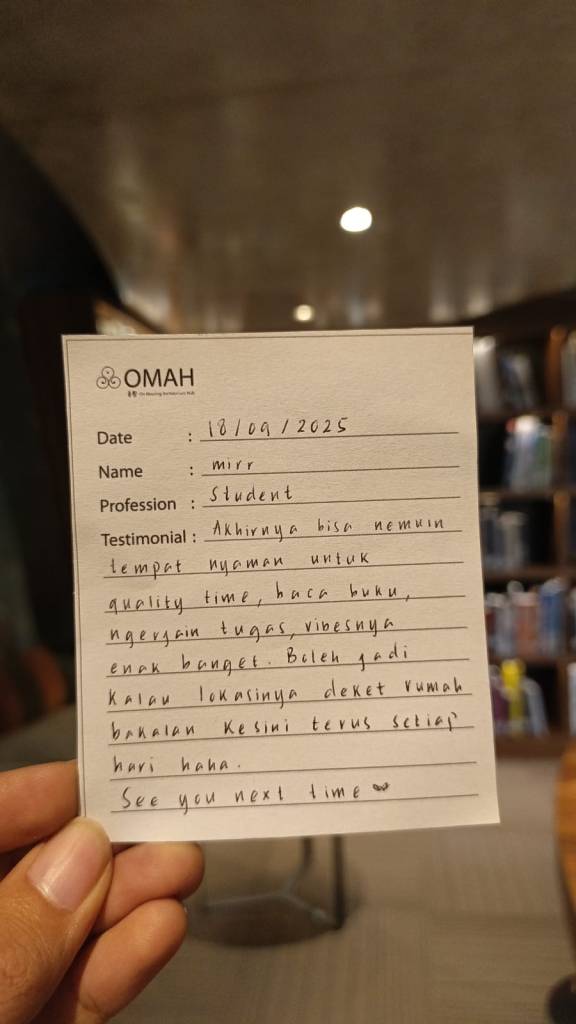 OMAH
Date : 18/09/2025
Name : mirr
Profession : Student
Testimonial : Akhirnya bisa nemuin
tempat nyaman untuk
quality time, baca buku,
ngerjain tugas, vibesnya
enak banget. Boleh jadi
kalau lokasinya deket rumah
bakalan kesini terus setiap
hari haha.
See you next time